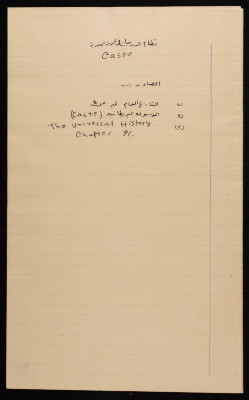 نظام
Caste
المصادر :-
(١) التاريخ العام
(٢) الموسوعة البريطانية (Caste)
(٣) The Universal History
Chapter 91.